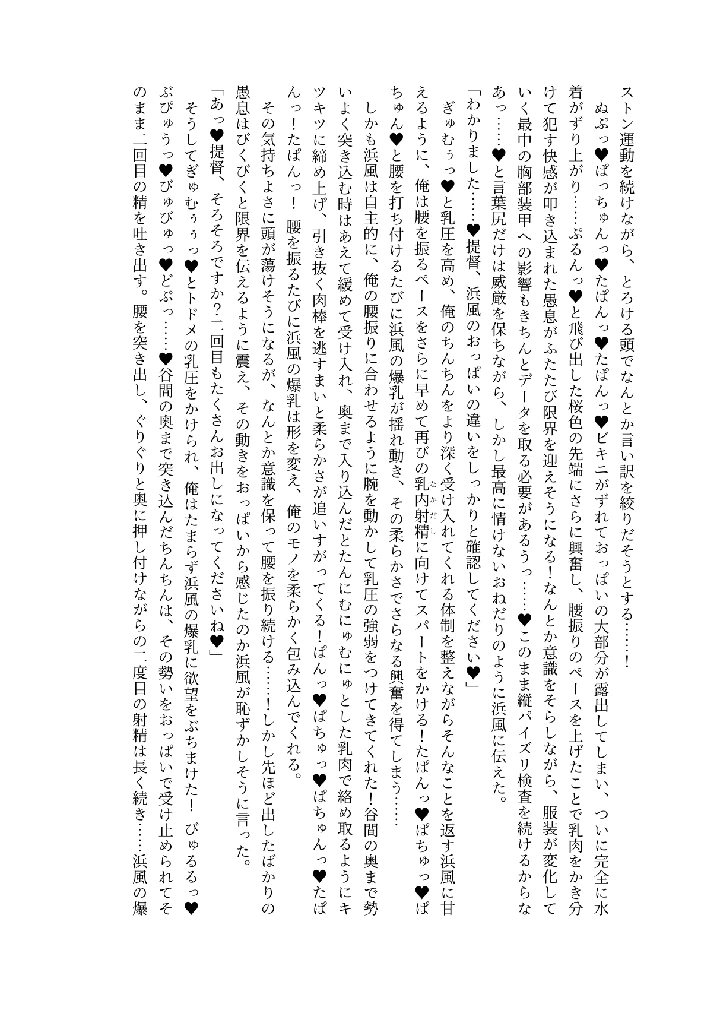 ストン運動を続けながら、とろける頭でなんとか言い訳を絞りだそうとする……！
ぬぷっ♥ぱっちゅんっ♥たぱんっ♥たぱんっ♥ビキニがずれておっぱいの大部分が露出してしまい、ついに完全に水
着がずり上がり……ぷるんっ♥と飛び出した桜色の先端にさらに興奮し、腰振りのペースを上げたことで乳肉をかき分
けて犯す快感が叩き込まれた愚息がふたたび限界を迎えそうになる！なんとか意識をそらしながら、服装が変化して
いく最中の胸部装甲への影響もきちんとデータを取る必要があるうっ……♥このまま縦パイズリ検査を続けるからな
あっ……♥と言葉尻だけは威厳を保ちながら、しかし最高に情けないおねだりのように浜風に伝えた。
「わかりました……♥提督、浜風のおっぱいの違いをしっかりと確認してください♥」
ぎゅむぅっ♥と乳圧を高め、俺のちんちんをより深く受け入れてくれる体制を整えながらそんなことを返す浜風に甘
えるように、俺は腰を振るペースをさらに早めて再びの乳内射精に向けてスパートをかける！たぱんっ♥ぱちゅっ♥ぱ
ちゅん♥と腰を打ち付けるたびに浜風の爆乳が揺れ動き、その柔らかさでさらなる興奮を得てしまう……
しかも浜風は自主的に、俺の腰振りに合わせるように腕を動かして乳圧の強弱をつけてきてくれた！谷間の奥まで勢
いよく突き込む時はあえて緩めて受け入れ、奥まで入り込んだとたんにむにゅむにゅとした乳肉で絡め取るようにキ
ツキツに締め上げ、引き抜く肉棒を逃すまいと柔らかさが追いすがってくる！ぱんっ♥ぱちゅっ♥ぱちゅんっ♥たぱ
んっ！たぱんっ！　腰を振るたびに浜風の爆乳は形を変え、俺のモノを柔らかく包み込んでくれる。
その気持ちよさに頭が蕩けそうになるが、なんとか意識を保って腰を振り続ける……！しかし先ほど出したばかりの
愚息はびくびくと限界を伝えるように震え、その動きをおっぱいから感じたのか浜風が恥ずかしそうに言った。
「あっ♥提督、そろそろですか？二回目もたくさんお出しになってくださいね♥」
そうしてぎゅむぅぅっ♥とトドメの乳圧をかけられ、俺はたまらず浜風の爆乳に欲望をぶちまけた！　びゅるるっ♥
ぷぴゅうっ♥びゅびゅっ♥どぷっ……♥谷間の奥まで突き込んだちんちんは、その勢いをおっぱいで受け止められてそ
のまま二回目の精を吐き出す。腰を突き出し、ぐりぐりと奥に押し付けながらの二度目の射精は長く続き……浜風の爆